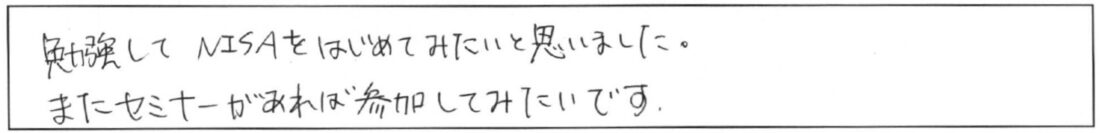 勉強して NISAをはじめてみたいと思いました。
またセミナーがあれば参加してみたいです.